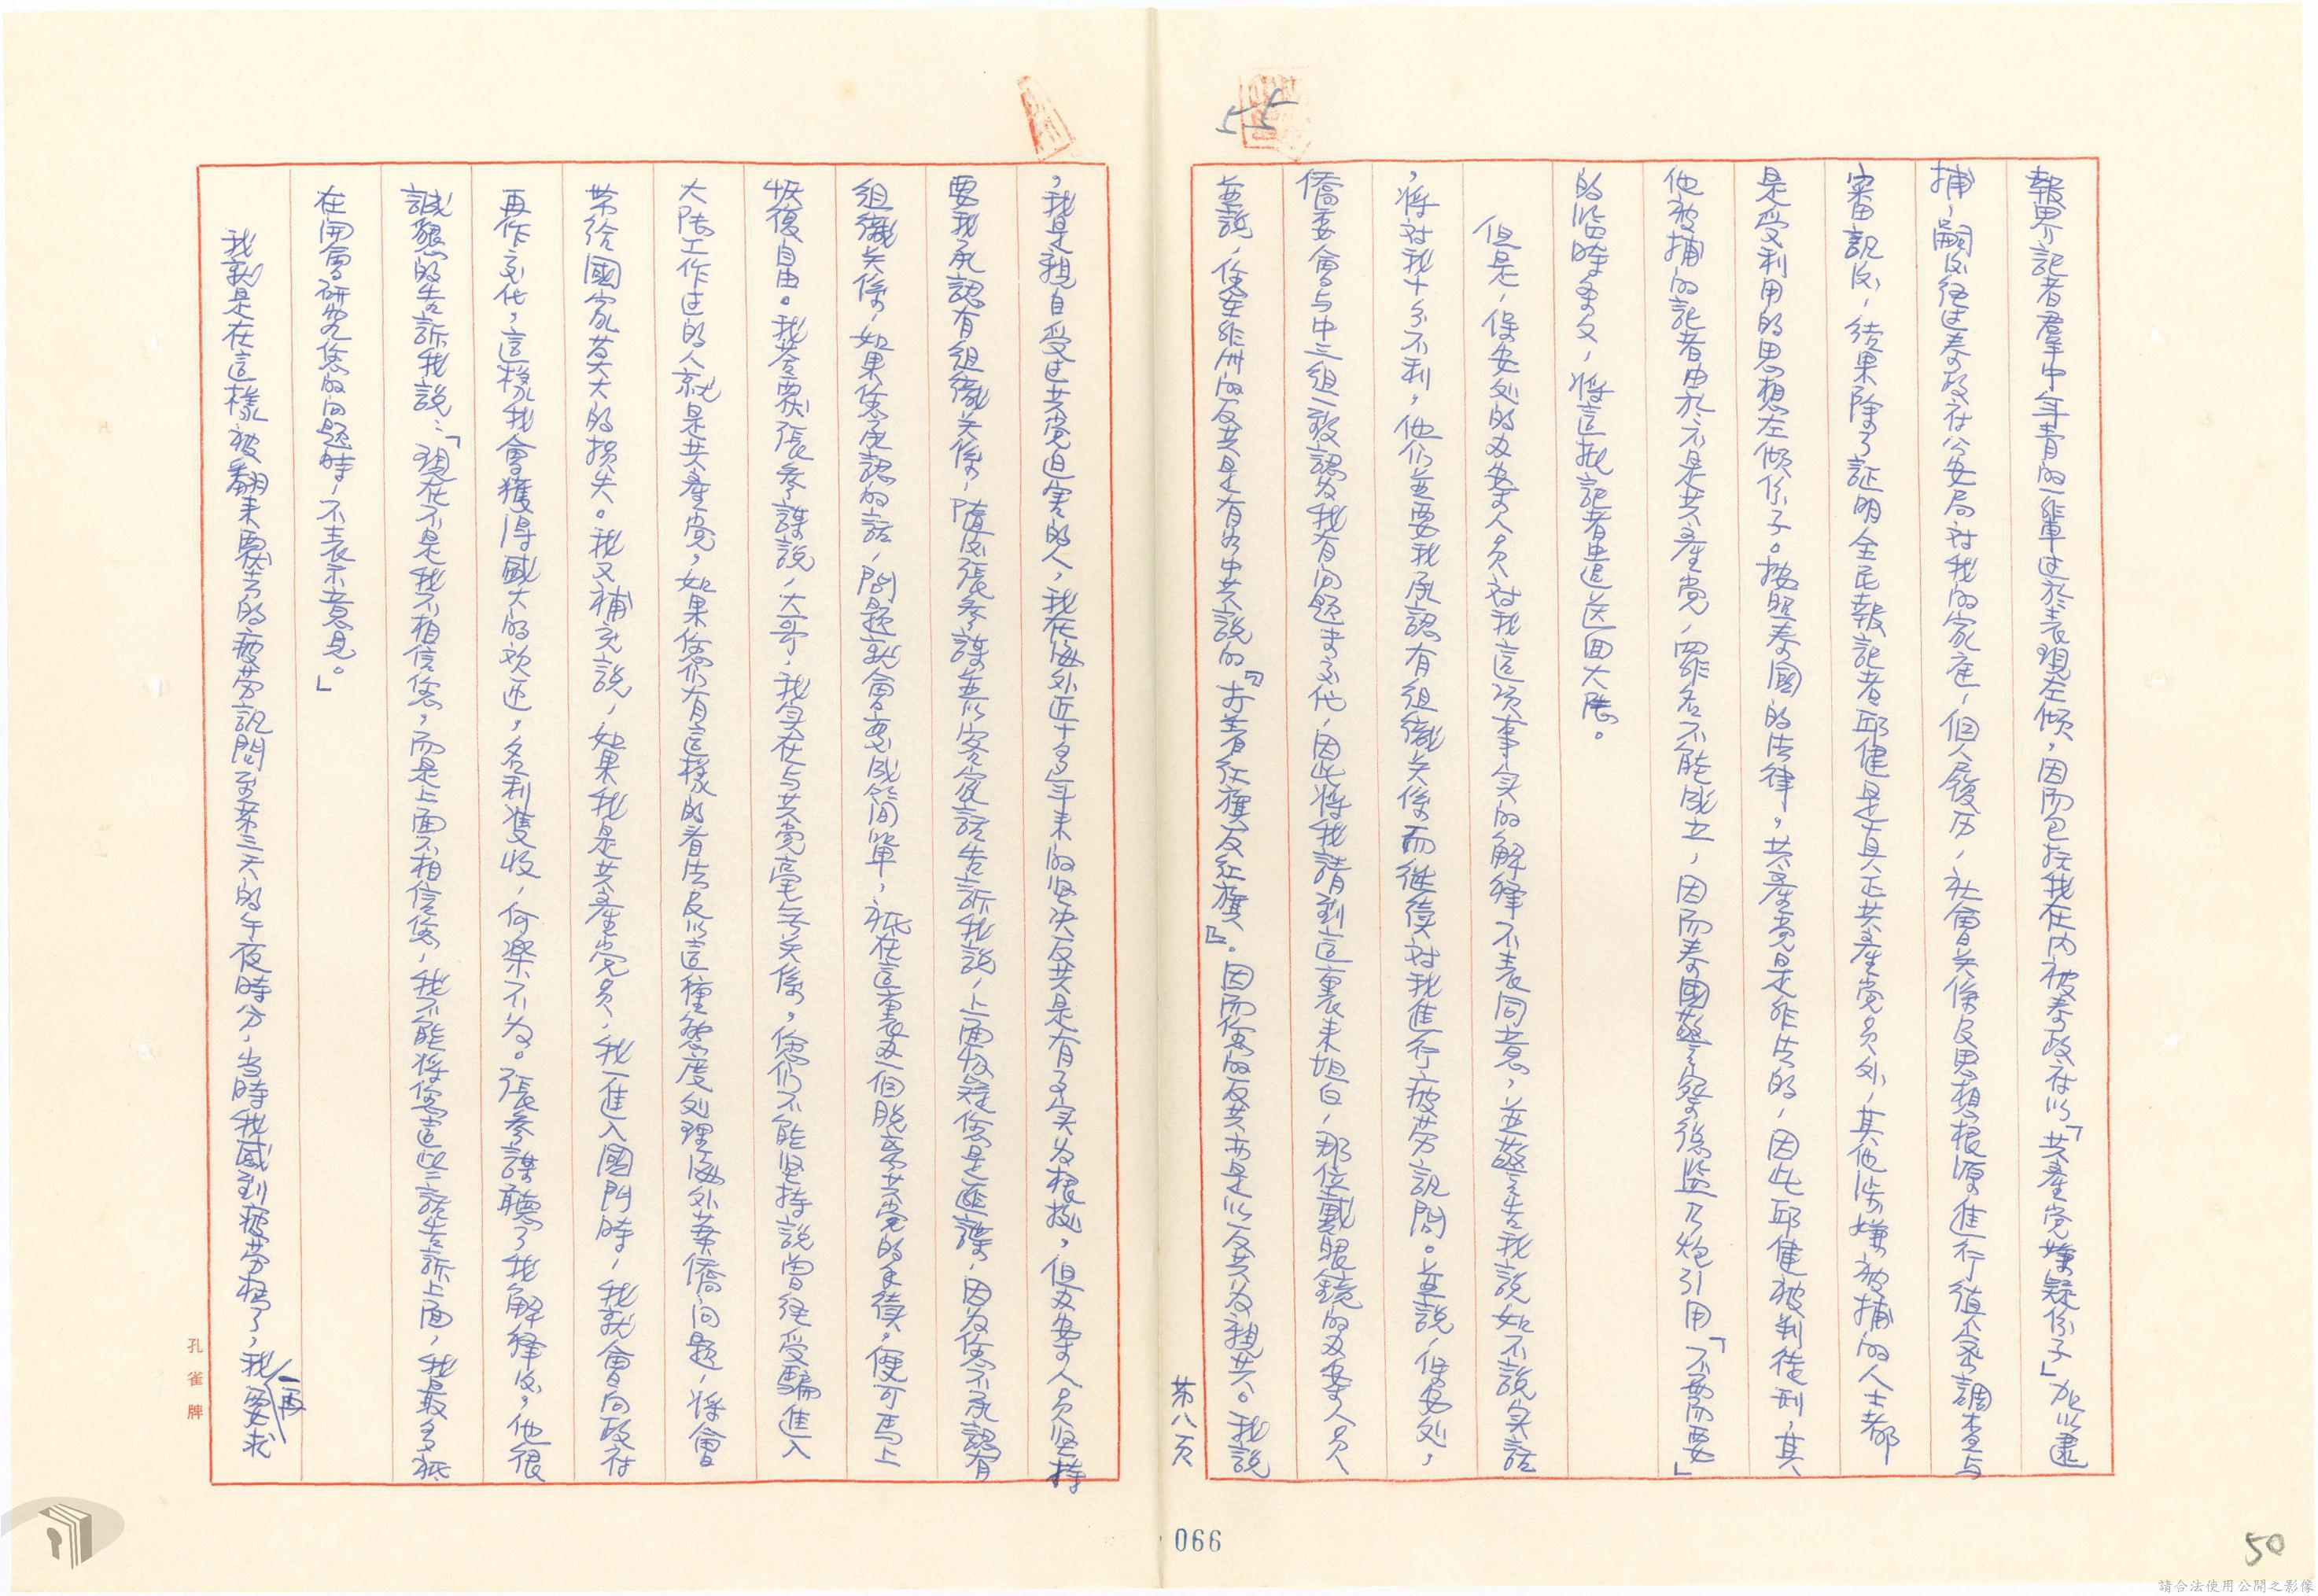 報界記者羣中年青的一輩过於表現左倾，因而包括我在内被泰政府以「共產党嫌疑份子」加以逮
捕，嗣後经过泰政府公安局对我的家庭，個人履历，社會関係及思想根源進行縝密調查与
審訊後，结果除了証明全民報記者邱健是真正共產党员外，其他涉嫌被捕的人士都
是受利用的思想左倾份子。按照泰國的法律，共產党是非法的，因此邱健被判徒刑，其
他被捕的記者由於不是共產党，罪名不能成立，因而泰國警察總监乃炮引用「不需要」
的临時条文，将這批記者遣送回大陸。
但是，保安处的办案人员对我這项事实的解释不表同意，並警告我說如不說実話
，将对我十分不利，他们並要我承認有組織关係而继续对我進行疲劳訊問。並說，保安处，
僑委會与中三組一致認為我有问题未交代，因此将我請到這裏来坦白，那位戴眼鏡的办案人员
並說，你在非洲的反共是有如中共說的『打着红旗反红旗』。因而你的反共亦是以反共为親共。我說
第八页
，我是親自受过共党迫害的人，我在海外近十多年来的坚决反共是有事实为根據，但办案人员坚持
要我承認有組織关係，随後張參謀並以客家話告訴我說，上面怀疑您是匪諜，因为您不承認有
組織关係，如果您承認的話，問題就會变成简單，祗在這裏办一個脱离共党的手續，便可馬上
恢復自由。我答覆張參謀說，大哥，我实在与共党毫無关係。您们不能坚持說曾经受騙進入
大陸工作过的人就是共產党，如果您们有這樣的看法及以這種態度处理海外華僑问题，将會
带给國家莫大的损失。我又補充說，如果我是共產党员，我一進入國門時，我就會向政府
再作交代，這樣我會獲得盛大的欢迎，名利雙收，何樂不为。張參謀聽了我解释後，他很
誠懇的告訴我說：「現在不是我不相信您，而是上面不相信您，我不能将您這些話告訴上面，我最多祗
在開會研究您的问题時，不表示意見。」
我就是在這樣被翻来覆去的疲劳訊問至第三天的午夜時分，当時我感到疲劳極了，我一再要求
孔雀牌
55
066
50
請合法使用公開之影像